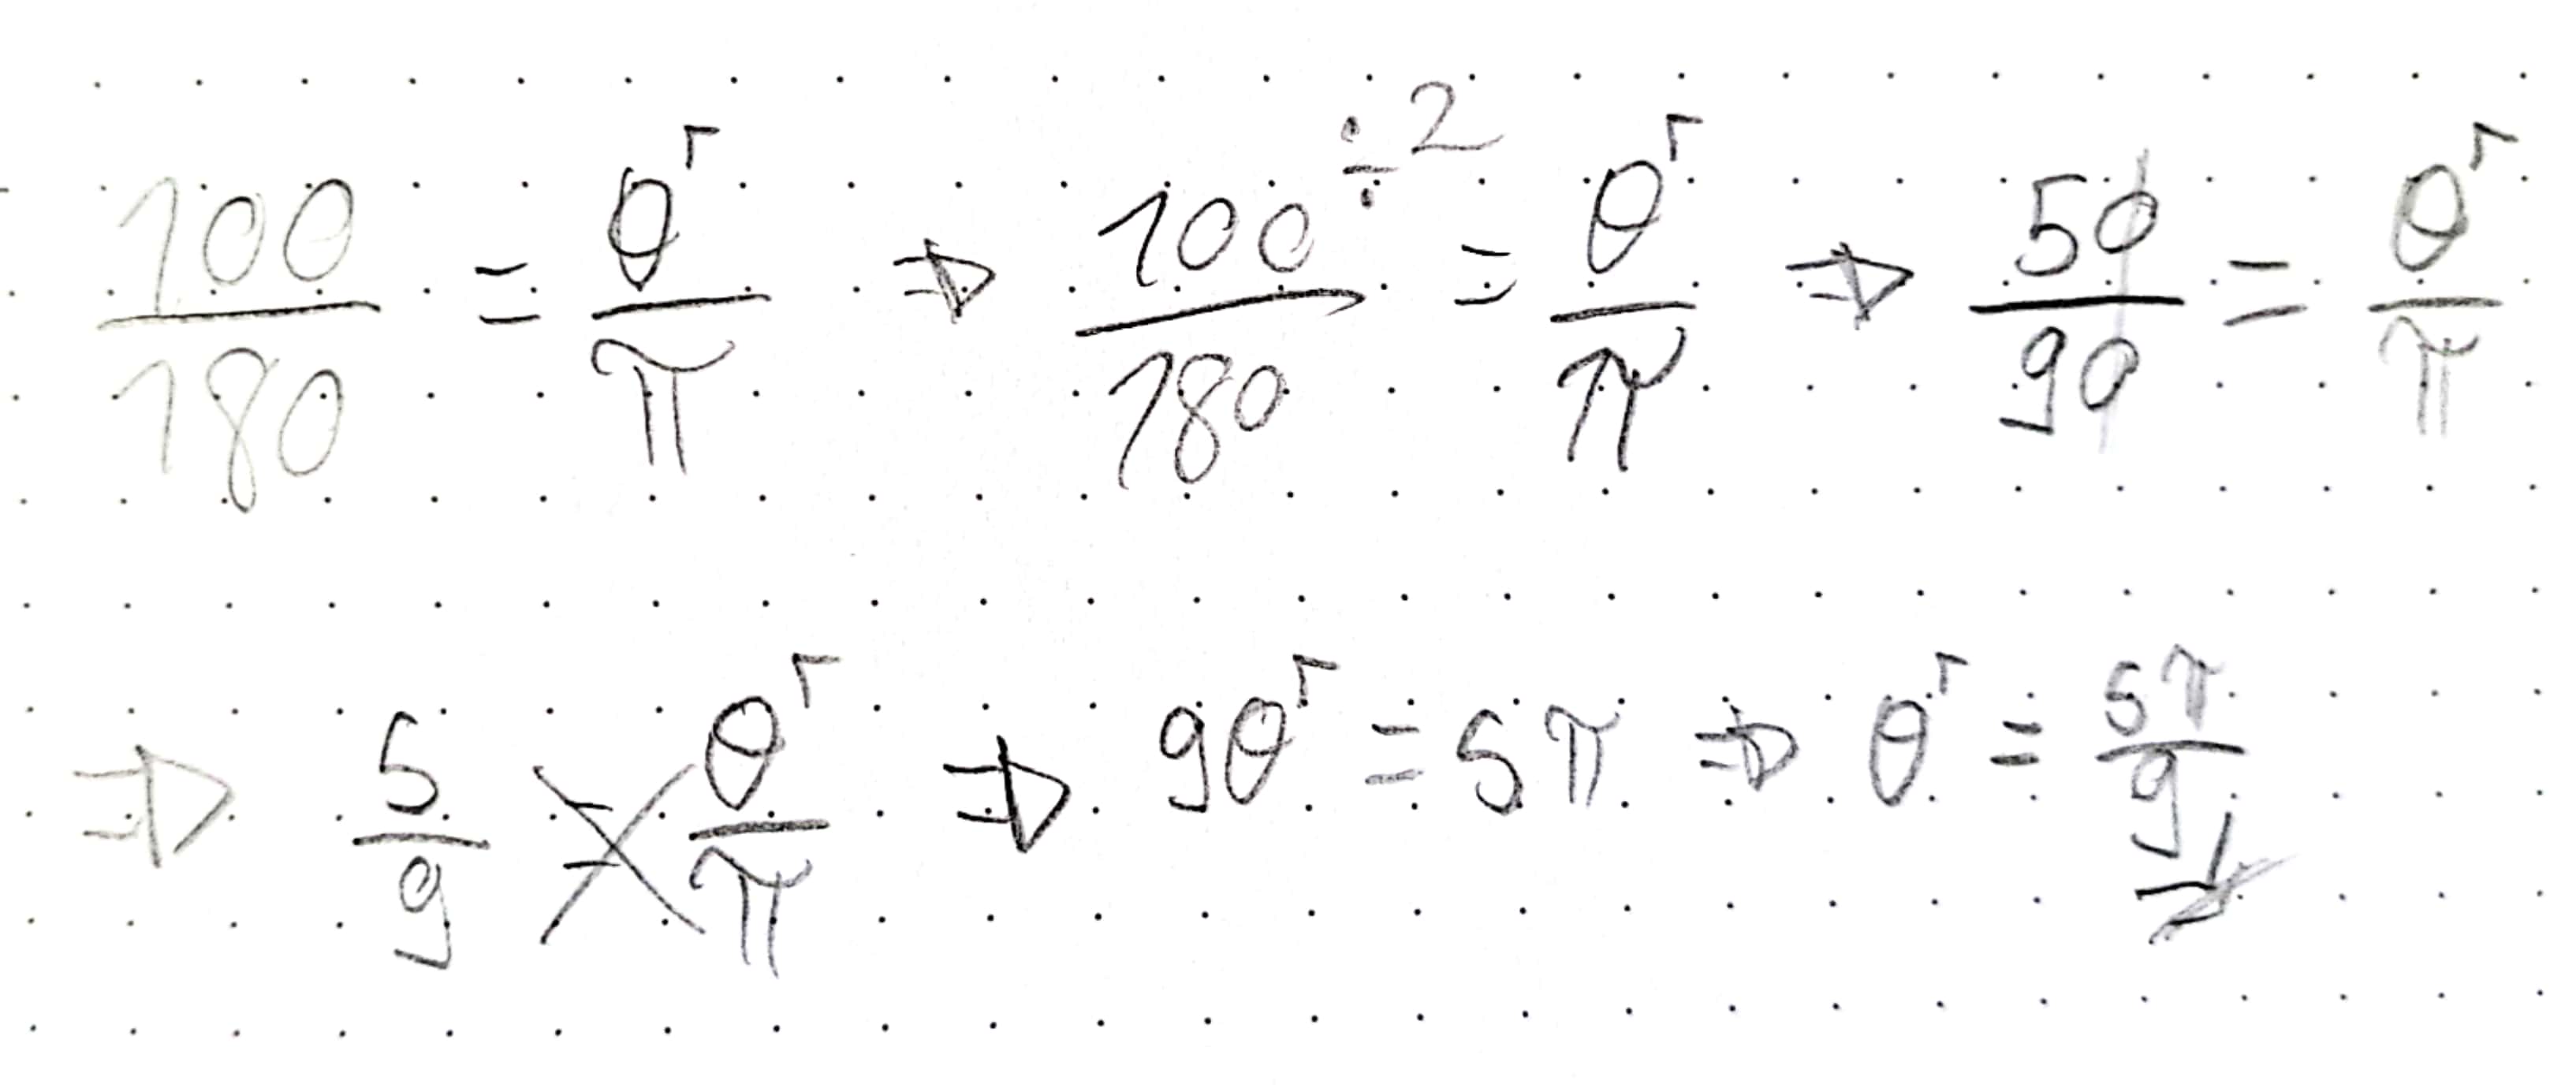 100/180 = θʳ/π ⇒ 100/180 ÷2 = θʳ/π ⇒ 50/90 = θʳ/π
⇒ 5/9 = θʳ/π ⇒ 9θʳ = 5π ⇒ θʳ = 5π/9